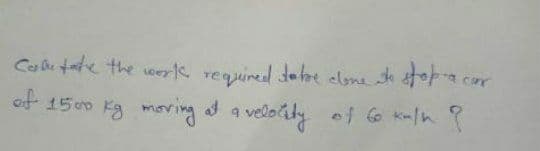 Calculate the work required to be done to stop a car
of 1500 kg moving at a velocity of 60 km/h ?